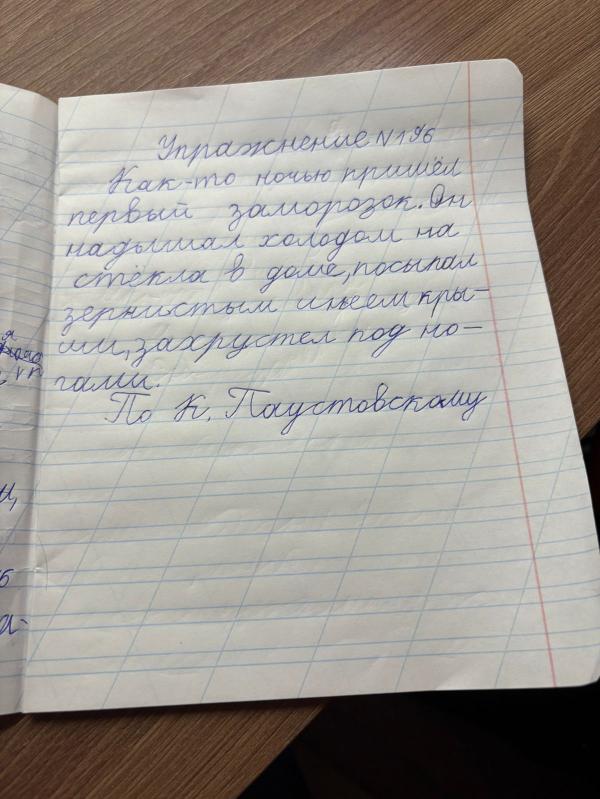 Упражнение №196
Как-то ночью пришёл
первый заморозок. Он
надышал холодом на
стёкла в доме, посыпал
зернистым инеем кры-
ши, захрустел под но-
гами.
По К. Паустовскому